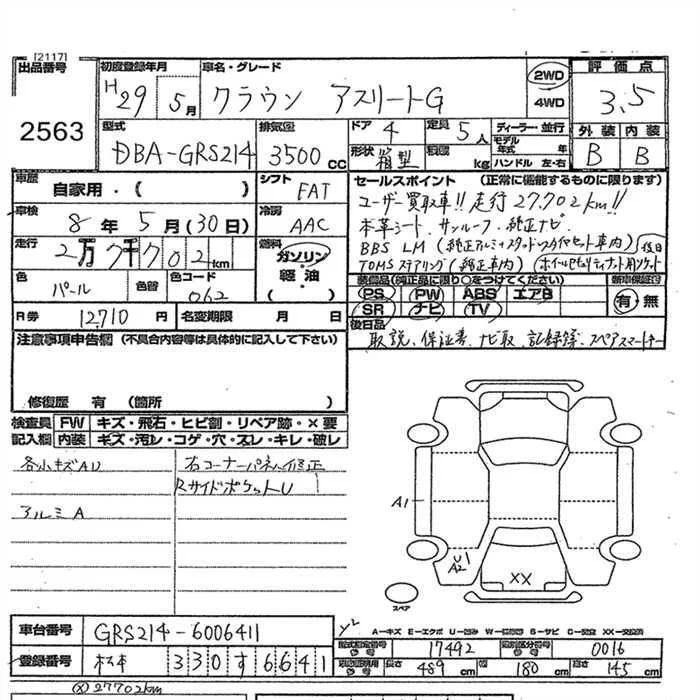 [2117]
出品番号
2563
初度登録年月
H29 5月
車名・グレード
クラウン アスリートG
2WD
4WD
評価点
3.5
外装 内装
B B
型式
DBA-GRS214
排気量
3500cc
ドア 4
形状 箱型
定員 5人
積載 kg
ディーラー・並行
モデル年式 年
ハンドル 左・右
車歴
自家用・( )
シフト FAT
車検
8年5月(30日)
冷房 AAC
走行
2万7千702km
燃料
ガソリン
軽油
( )
色 パール 色替
色コード 062
R券 12,710円
名変期限 月 日
セールスポイント (正常に機能するものに限ります)
ユーザー買取車!! 走行27,702km!!
本革シート、サンルーフ、純正ナビ
BBS LM (純正アルミ+スタッドレスタイヤセット車内) 後日
TOMSステアリング (純正車内)
装備品(純正品に限り○をつけてください)
新車保証付
PS PW ABS エアB
SR ナビ TV
有・無
後日品
取説、保証書、ナビ取、記録簿、スペアスマートキー
注意事項申告欄 (不具合内容等は具体的に記入して下さい)
修復歴 有 (箇所 )
検査員記入欄
FW キズ・飛石・ヒビ割・リペア跡・×要
内装 キズ・汚レ・コゲ・穴・スレ・キレ・破レ
各小キズAU
右コーナーパネル修正
RサイドポケットU
アルミA
A1
U1
A2
XX
スペア
A-キズ E-エクボ U-凹み W-補修跡 S-サビ C-腐食 XX-交換済
車台番号 GRS214-6006411
登録番号 松本 330す6641
型式指定番号 17492
類別区分番号 0016
長さ 489cm 幅 180cm 高さ 145cm
27702km